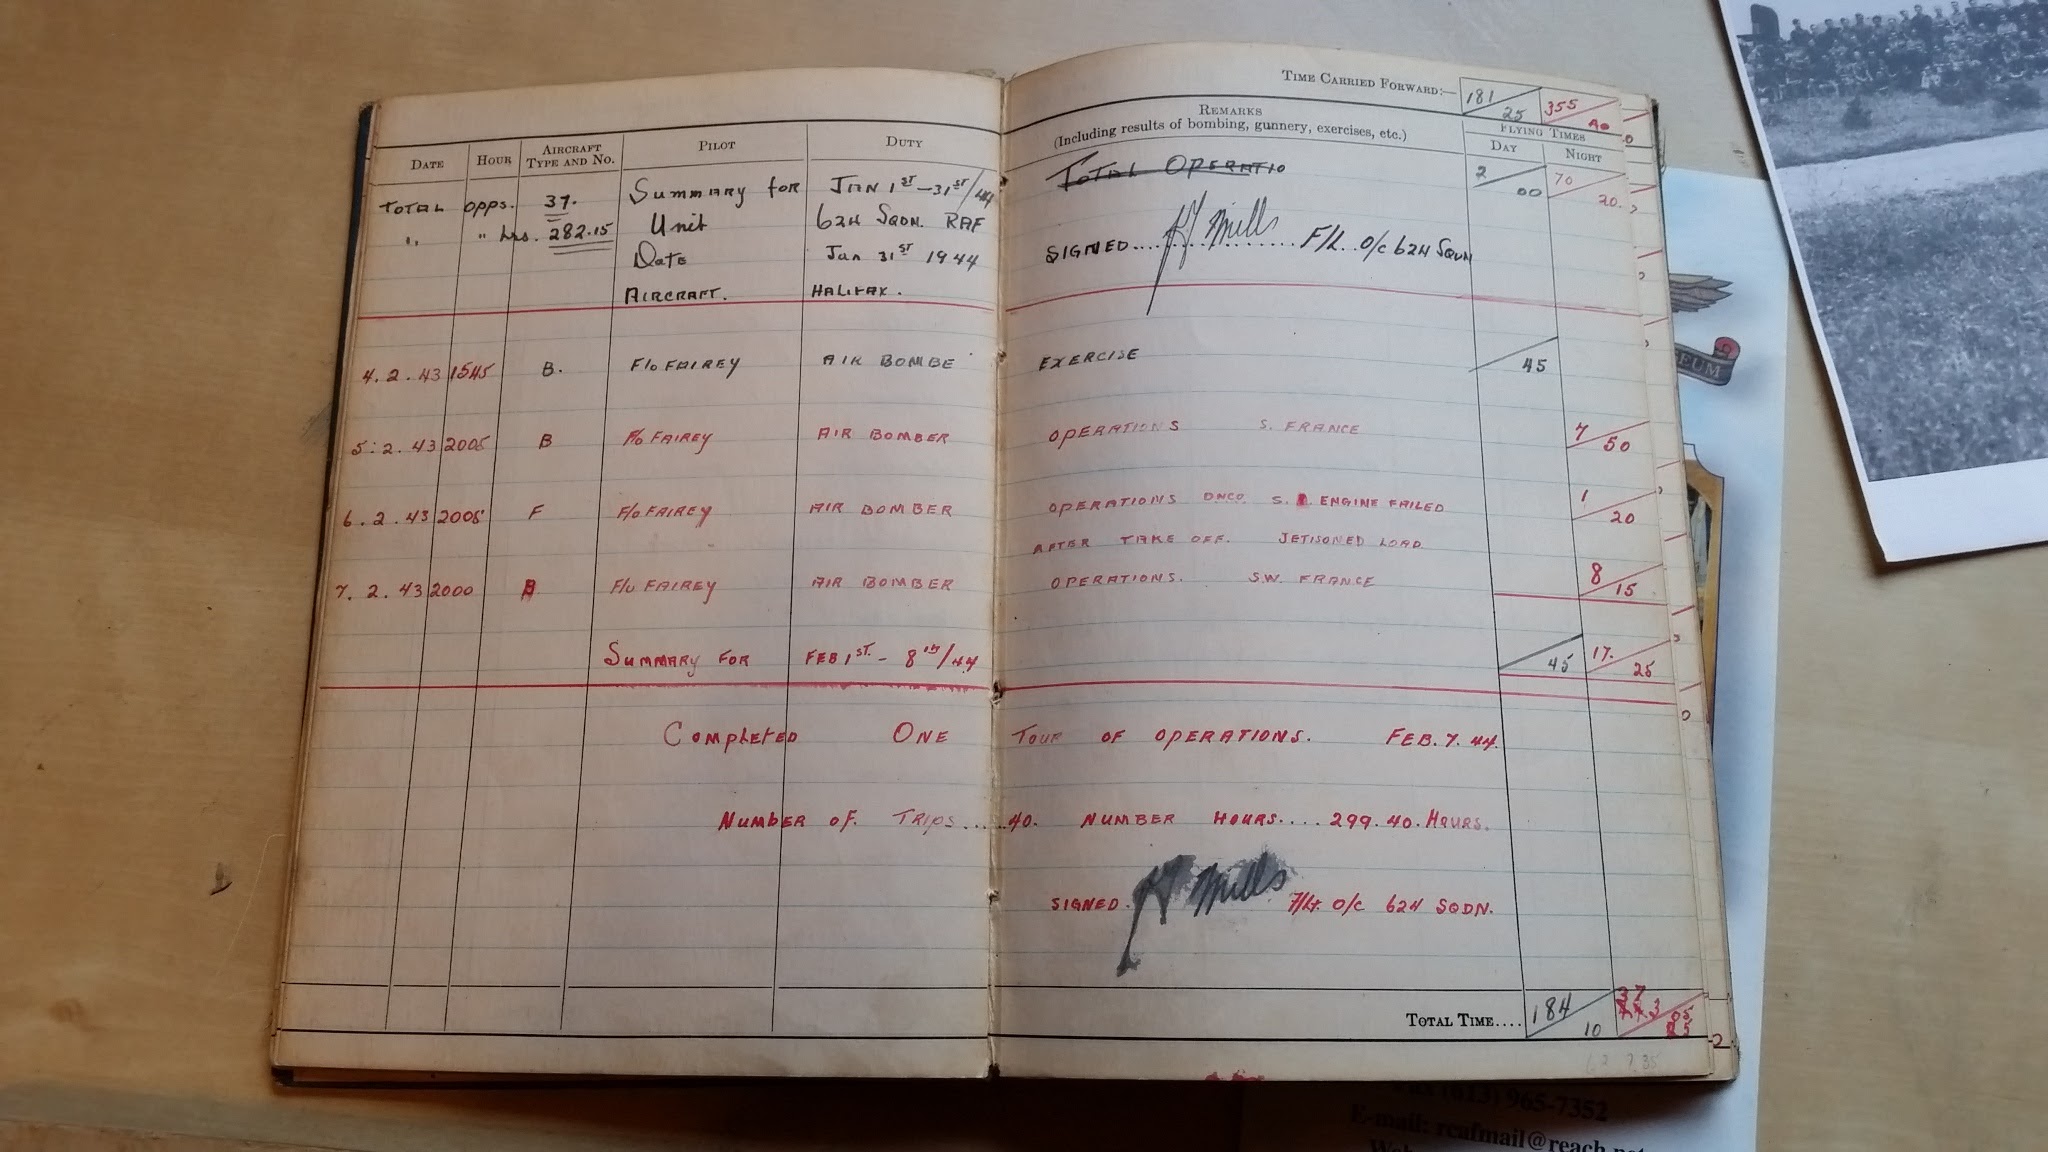 TIME CARRIED FORWARD:— 181 25 355 40
DATE HOUR AIRCRAFT TYPE AND NO. PILOT DUTY REMARKS (Including results of bombing, gunnery, exercises, etc.) FLYING TIMES DAY NIGHT
TOTAL OPPS. 37. SUMMARY FOR JAN 1ST-31ST/44 TOTAL OPERATIO 2 00 70 20.
" " hrs. 282.15 Unit 624 SQDN. RAF
SIGNED.... Mills .... F/L. O/C 624 SQDN
Date Jan 31ST 1944
AIRCRAFT. HALIFAX.
4.2.43 1545 B. F/O FAIREY AIR BOMBE EXERCISE 45
5.2.43 2005 B F/O FAIREY AIR BOMBER OPERATIONS S. FRANCE 7 50
6.2.43 2005 F F/O FAIREY AIR BOMBER OPERATIONS DNCO. S. ENGINE FAILED 1 20
AFTER TAKE OFF. JETISONED LOAD
7.2.43 2000 B F/O FAIREY AIR BOMBER OPERATIONS. S.W. FRANCE 8 15
SUMMARY FOR FEB 1ST. - 8TH/44 45 17. 25
COMPLETED ONE TOUR OF OPERATIONS. FEB. 7. 44.
NUMBER OF. TRIPS.....40. NUMBER HOURS.... 299.40. HOURS.
SIGNED. Mills F/Lt. O/C 624 SQDN.
TOTAL TIME.... 184 10
EUM
965-7352
E-mail: rcafmail@reach.net